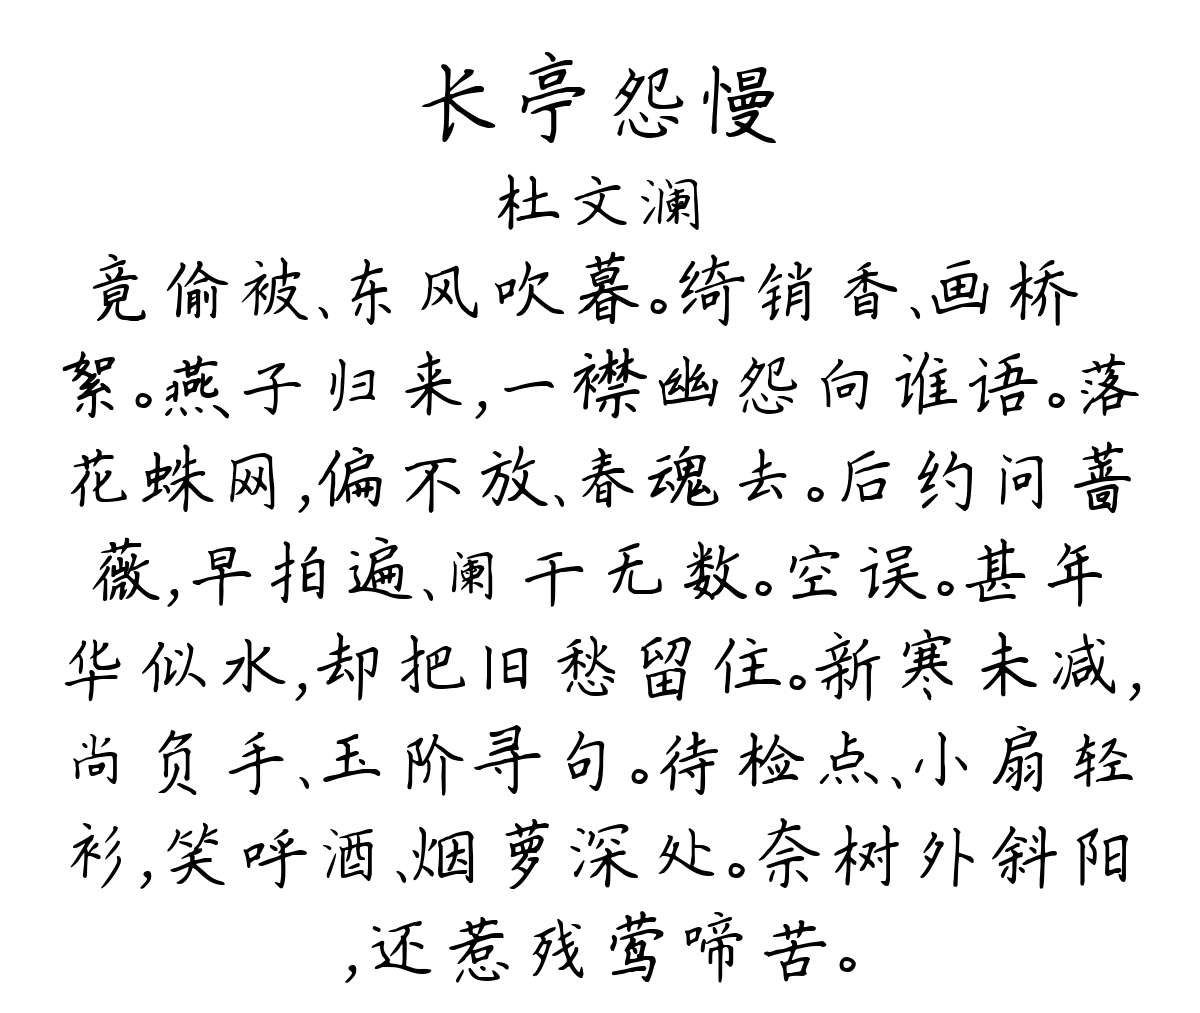 长亭怨慢
杜文澜
竟偷被、东风吹暮。绮销香、画桥
絮。燕子归来,一襟幽怨向谁语。落
花蛛网,偏不放、春魂去。后约问蔷
薇,早拍遍、阑干无数。空误。甚年
华似水,却把旧愁留住。新寒未减,
尚负手、玉阶寻句。待检点、小扇轻
衫,笑呼酒、烟萝深处。奈树外斜阳
,还惹残莺啼苦。